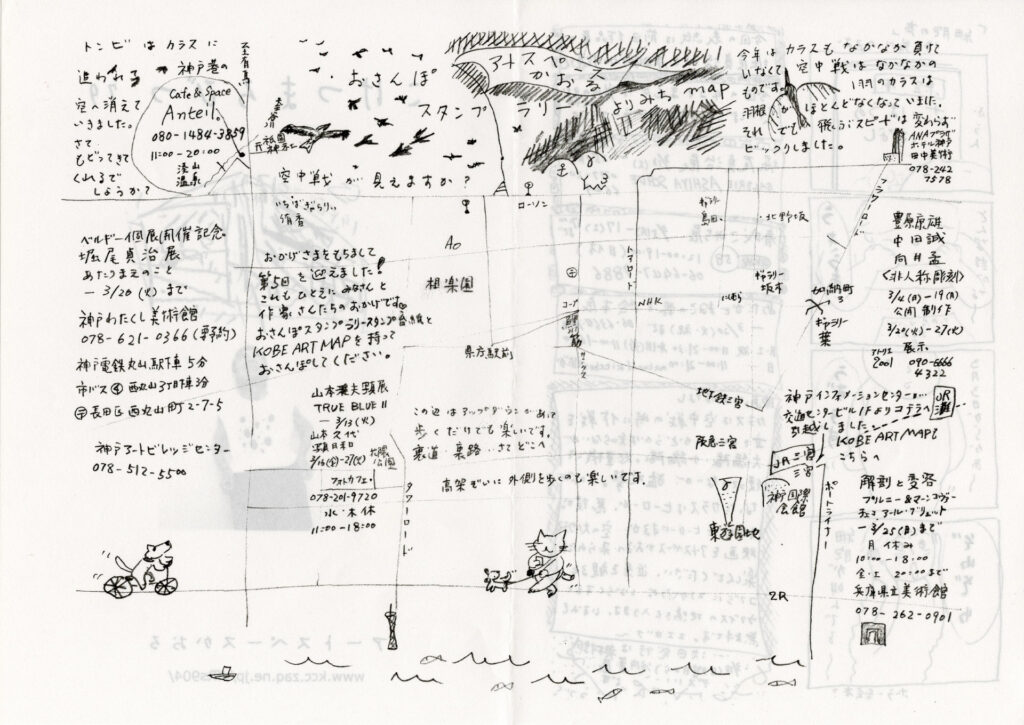 トンビはカラスに
追われる
空へ消えて
いきました。
さて
もどってきて
くれるで
しょうか?
至有馬
神戸港の
Cafe & Space
Anteil。
080-1484-3859
11:00-20:00
湊山
温泉
祇園
神社
おさんぽ
スタンプ
ラリー
空中戦が見えますか?
アートスペース
かおる
よりみち map
今年はカラスもなかなか負けて
いなくて空中戦はなかなかの
ものです。1羽のカラスは
羽根がほとんどなくなっていました。
それでも飛ぶスピードは変わらず
ビックリしました。
ANAプラザ
ホテル神戸
田中美術
078-242
7578
フラワーロード
ローソン
いちばぎゃらりぃ
侑香
ギャラリー
島田
・北野坂
ベルデー個展開催記念
堀尾貞治展
あたりまえのこと
ー3/20(火)まで
神戸わたくし美術館
078-621-0366(要予約)
神戸電鉄丸山駅下車5分
市バス④西丸山3丁目下車3分
〒長田区西丸山町2-7-5
神戸アートビレッジセンター
078-512-5500
おかげさまをもちまして
第5回を迎えました!
これもひとえにみなさんと
作家さんたちのおかげです。
おさんぽスタンプラリースタンプ台紙と
KOBE ART MAPを持って
おさんぽしてください。
AO
相楽園
県庁駅前
トアロード
NHK
コープ
鯉川筋
ギャラリー
坂本
加納町
3
ギャラリー
葉
豊原康雄
中田誠
向井孟
〈非人称彫刻〉
3/4(日)-19(月)
公開制作
3/20(火)-27(火)
展示
アトリエ
2001
090-6666
4322
山本雅夫顕展
TRUE BLUE II
ー3/13(火)
山本文代
写真日和
3/16(金)-27(火)
フォトカフェ
078-201-9720
水・木休
11:00-18:00
大倉山
公園
タワーロード
この辺はアップダウンがあって
歩くだけでも楽しいです。
裏道・裏路…さてどこへ
高架ぞいに外側を歩くのも楽しいです。
地下鉄三宮
阪急三宮
JR三宮
三宮
東遊園地
神戸国際
会館
ポートライナー
2R
神戸インフォメーションセンターが
交通センタービル1Fよりコチラへ
引越ししました
KOBE ART MAPも
こちらへ
JR
灘
解剖と変容
プルニー&マーンコヴァー
チェコ、アール・ブリュット
ー3/25(日)まで
月休み
10:00-18:00
金・土 20:00まで
兵庫県立美術館
078-262-0901